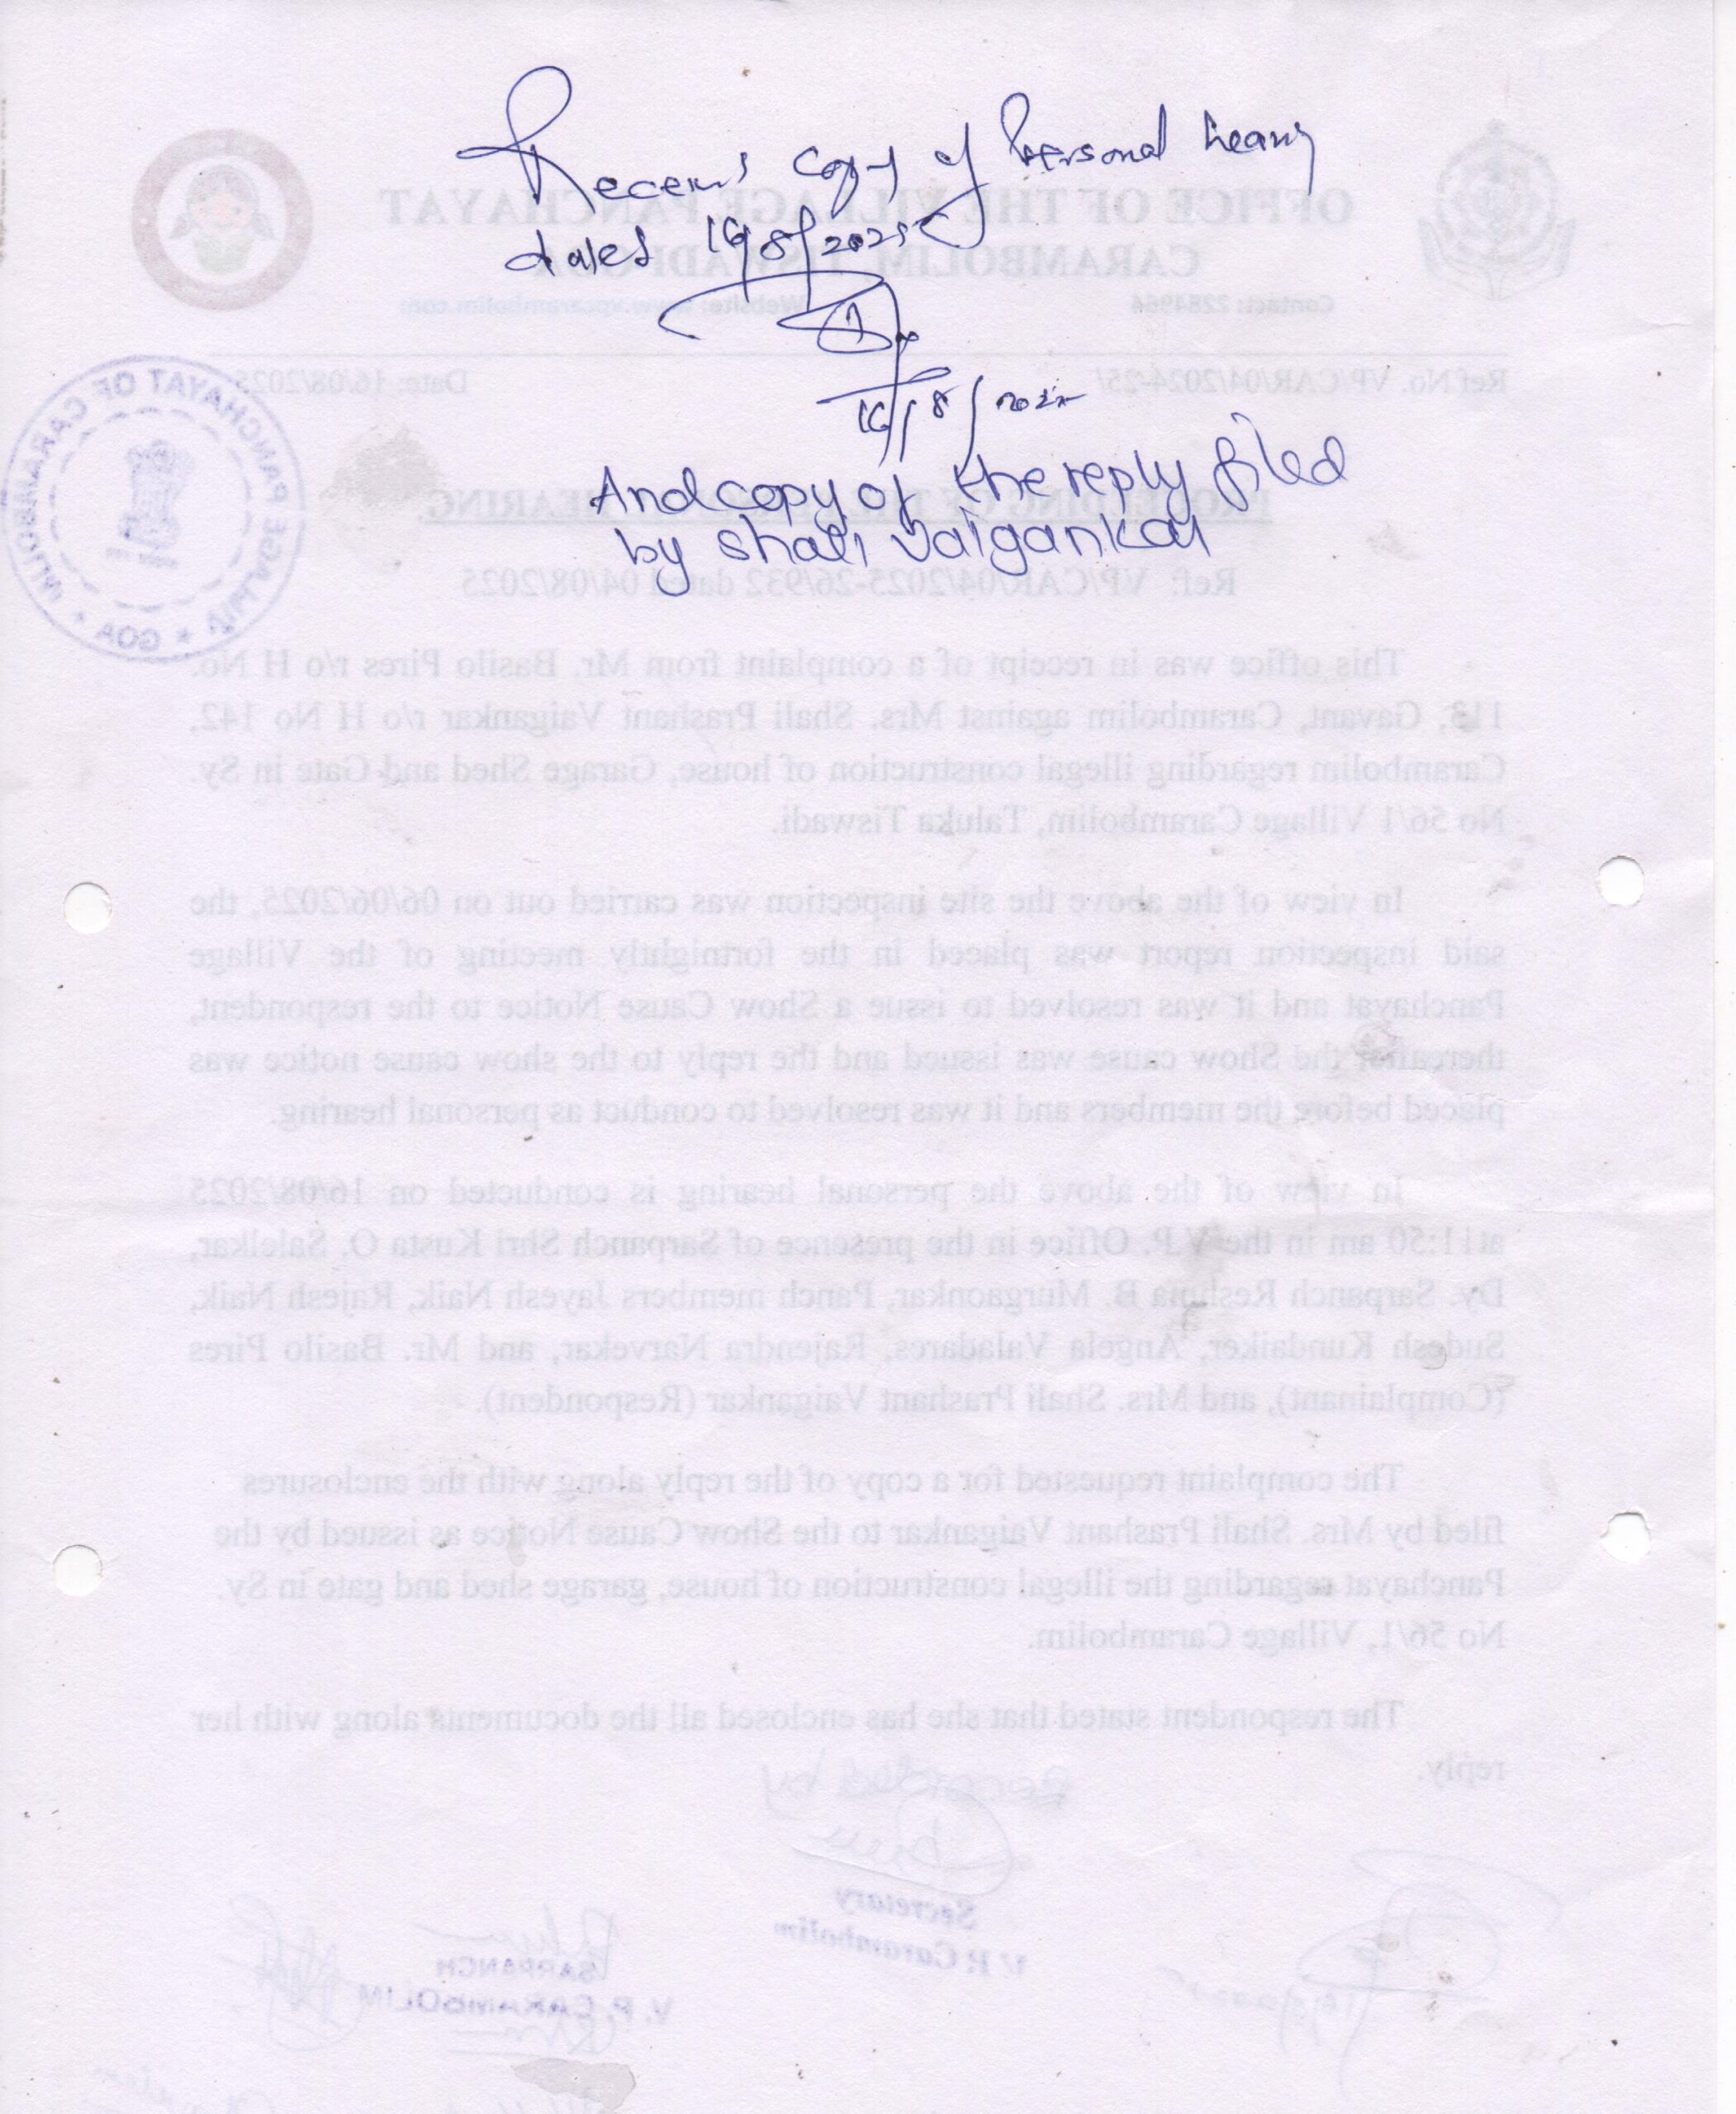 Received copy of Personal hearing
dated 16/8/2025
16/8/2025
And copy of the reply filed
by Shali Vaigankar
OFFICE OF THE VILLAGE PANCHAYAT
CARAMBOLIM TISWADI-GOA
Contact: 2284964 Website: www.vpcarambolim.com
Ref No. VP/CAR/04/2024-25/ Date: 16/08/2025
VILLAGE PANCHAYAT OF CARAMBOLIM * GOA *
PROCEEDING OF THE HEARING
Ref: VP/CAR/04/2025-26/932 dated 04/08/2025
This office was in receipt of a complaint from Mr. Basilo Pires r/o H No.
113, Gavant, Carambolim against Mrs. Shali Prashant Vaigankar r/o H No 142,
Carambolim regarding illegal construction of house, Garage Shed and Gate in Sy.
No 56/1 Village Carambolim, Taluka Tiswadi.
In view of the above the site inspection was carried out on 06/06/2025, the
said inspection report was placed in the fortnightly meeting of the Village
Panchayat and it was resolved to issue a Show Cause Notice to the respondent,
thereafter the Show cause was issued and the reply to the show cause notice was
placed before the members and it was resolved to conduct as personal hearing.
In view of the above the personal hearing is conducted on 16/08/2025
at11:50 am in the V.P. Office in the presence of Sarpanch Shri Kusta O. Salelkar,
Dy. Sarpanch Reshma B. Murgaonkar, Panch members Jayesh Naik, Rajesh Naik,
Sudesh Kundaiker, Angela Valadares, Rajendra Narvekar, and Mr. Basilo Pires
(Complainant), and Mrs. Shali Prashant Vaigankar (Respondent).
The complaint requested for a copy of the reply along with the enclosures
filed by Mrs. Shali Prashant Vaigankar to the Show Cause Notice as issued by the
Panchayat regarding the illegal construction of house, garage shed and gate in Sy.
No 56/1, Village Carambolim.
The respondent stated that she has enclosed all the documents along with her
reply.
Recorded by
Secretary
V P Carambolim
SARPANCH
V. P. CARAMBOLIM